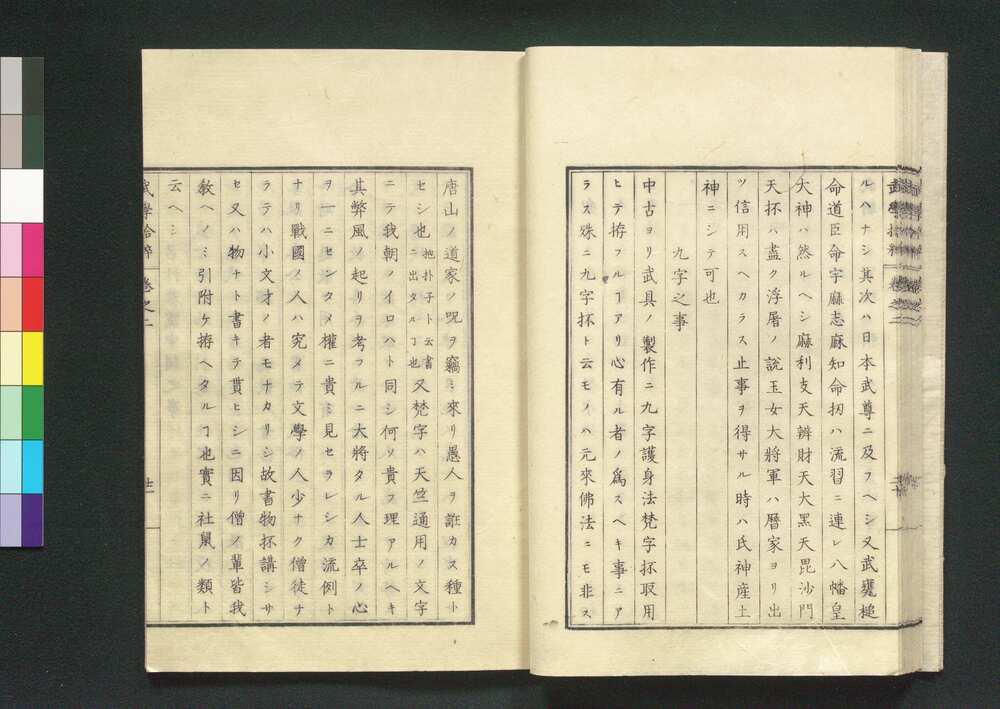 ルハナシ其次ハ日本武尊ニ及フヘシ又武甕槌
命道臣命宇麻志麻知命扨ハ流習ニ連レ八幡皇
大神ハ然ルヘシ麻利支天辨財天大黒天毘沙門
天抔ハ盡ク浮屠ノ説玉女大將軍ハ暦家ヨリ出
ツ信用スヘカラス止事ヲ得サル時ハ氏神産土
神ニシテ可也
九字之事
中古ヨリ武具ノ製作ニ九字護身法梵字抔取用
ヒテ拵フルヿアリ心有ル者ノ爲スヘキ事ニア
ラス殊ニ九字抔ト云モノハ元來佛法ニモ非ス
唐山ノ道家ノ呪ヲ竊ミ來リ愚人ヲ誑カス種ト
セシ也抱扑子ト云書ニ出タルヿ也又梵字ハ天竺通用ノ文字
ニテ我朝ノイロハト同シ何ソ貴フ理アルヘキ
其弊風ノ起リヲ考フルニ大將タル人士卒ノ心
ヲ一ニセンタメ權ニ貴ミ見セラレシカ流例ト
ナリ戰國ノ人ハ究メテ文學ノ人少ナク僧徒ナ
ラテハ小文才ノ者モナカリシ故書物抔講シサ
セ又ハ物ナト書キテ貰ヒシニ因リ僧ノ輩皆我
敎ヘノミ引附ケ拵ヘタルヿ也實ニ社鼠ノ類ト
云ヘシ
武學拾粹 卷之二
廿一